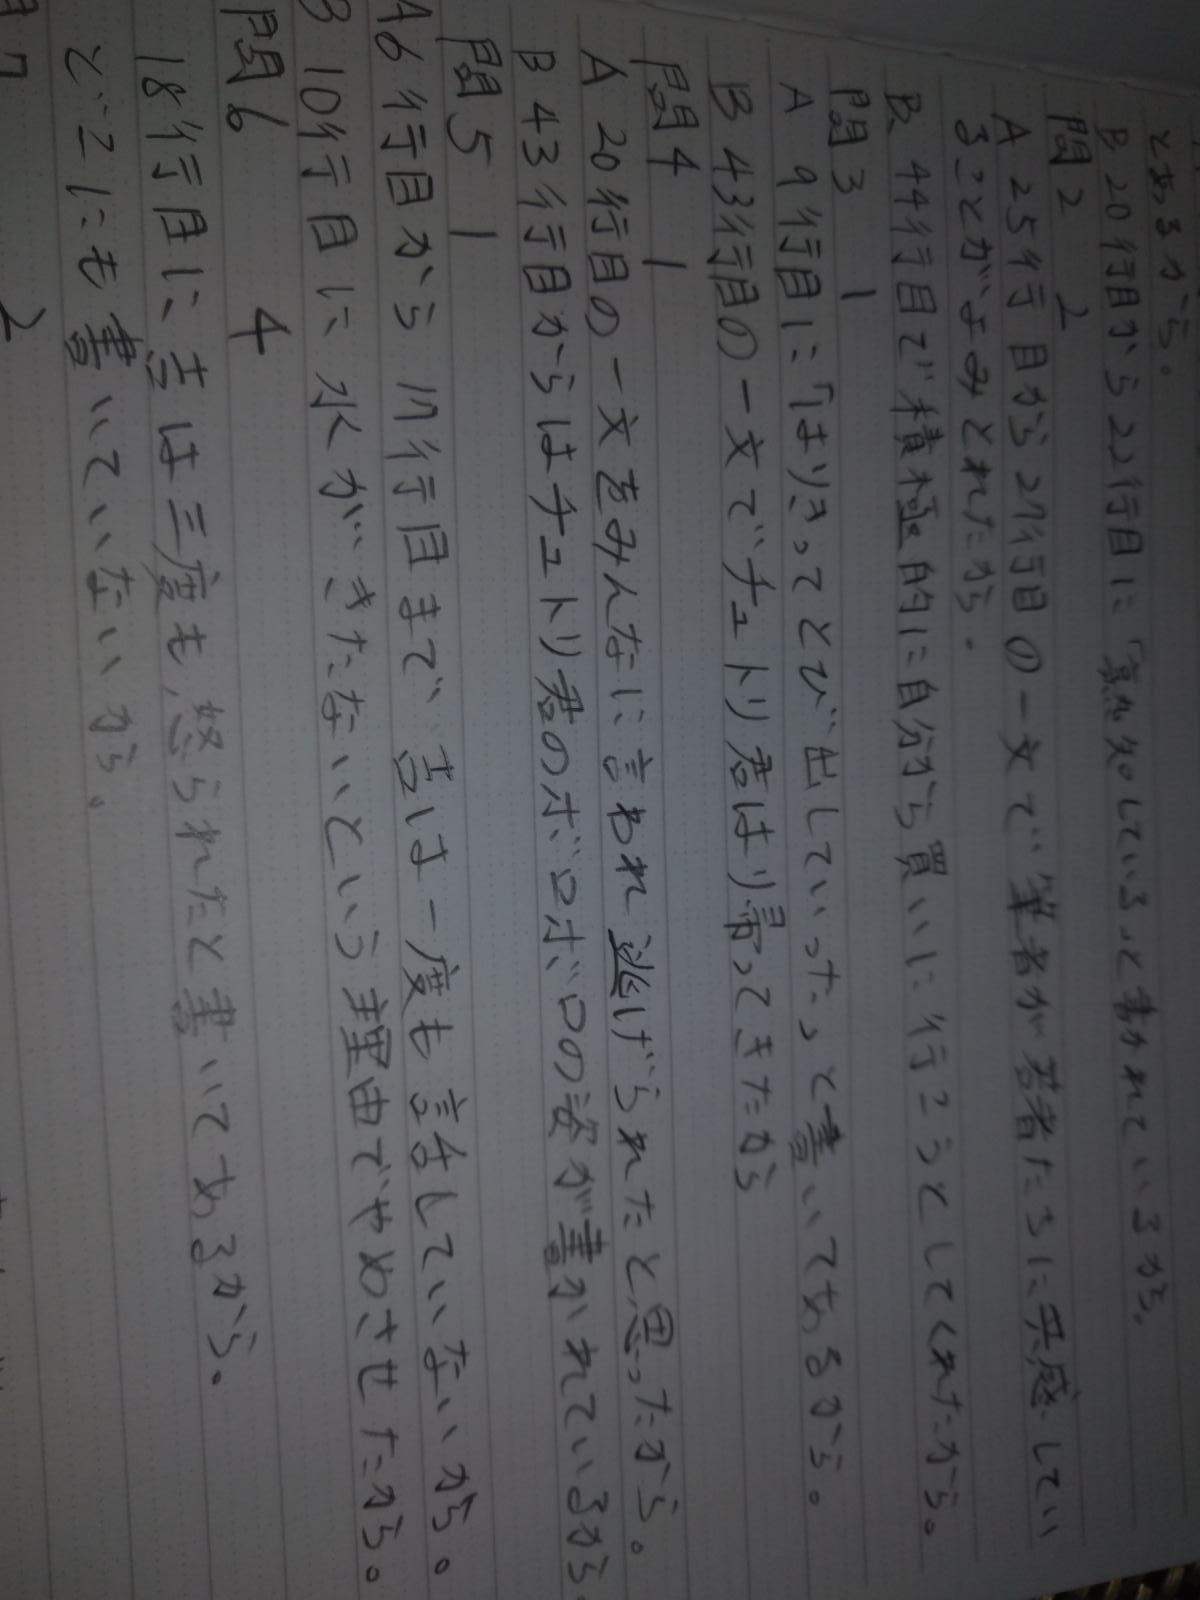 とあるから。
B 20行目から22行目に「熟知している」と書かれているから。
問2 2
A 25行目から27行目の一文で、筆者が若者たちに共感してい
ることがよみとれたから。
B 44行目で積極的に自分から買いに行こうとしてくれたから。
問3 1
A 9行目に「はりきってとび出していった」と書いてあるから。
B 43行目の一文でチュトリ君は帰ってきたから
問4 1
A 20行目の一文をみんなに言われ逃げられたと思ったから。
B 43行目からはチュトリ君のボロボロの姿が書かれているから
問5 1
A 6行目から17行目まで、吉は一度も話していないから。
B 10行目に水がきたないという理由でやめさせたから。
問6 4
18行目に吉は三度も、怒られたと書いてあるから。
どこにも書いていないから。
2